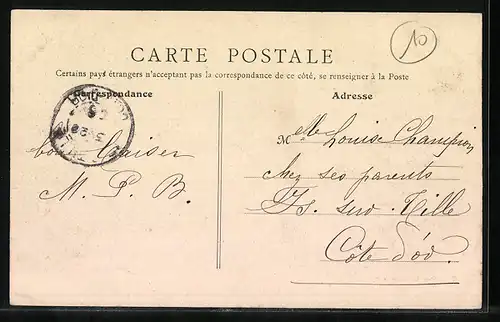 10
CARTE POSTALE
Certains pays étrangers n'acceptant pas la correspondance de ce côté, se renseigner à la Poste
Correspondance
Adresse
Mlle Louise Champion
chez ses parents
Is sur Tille
Côte d'or.
bon baiser
M. P. B.